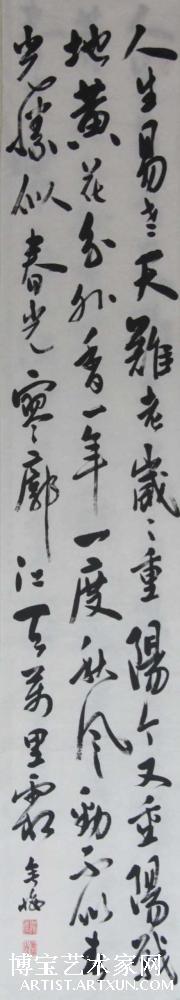 人生易老天難老歲々重陽今又重陽戰
地黄花分外香一年一度秋風勁不似春
光勝似春光寥廓江天萬里霜
博宝艺术家网
ARTIST.ARTXUN.COM